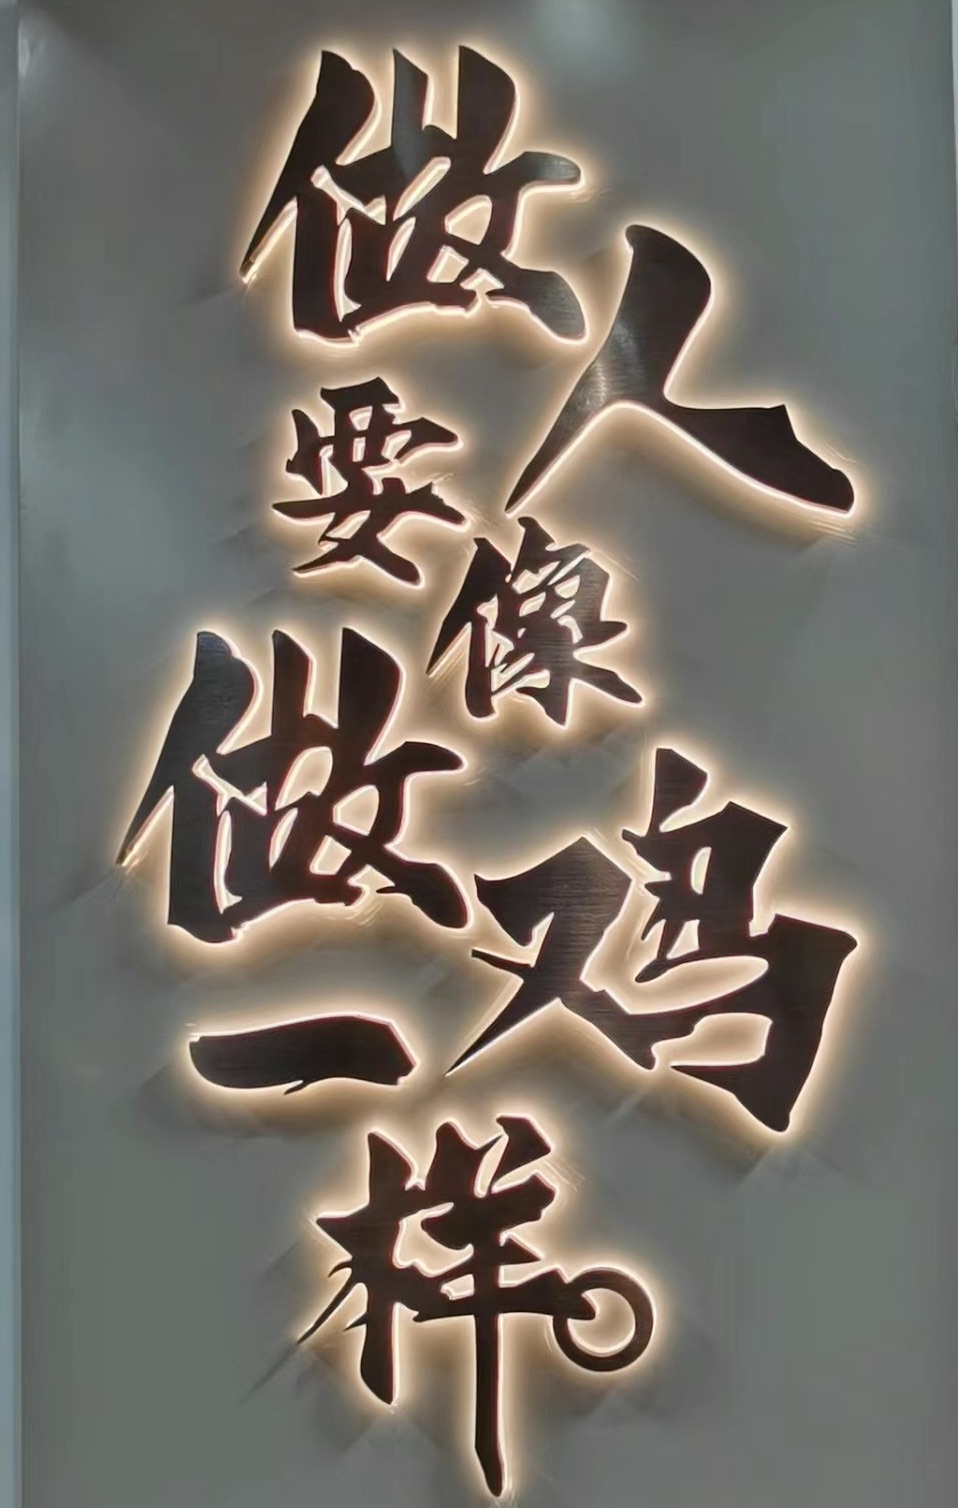 做人
要像
做鸡
一样。